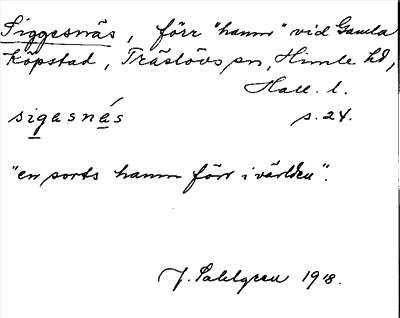 Siggesnäs, förr "hamn" vid Gamla
Köpstad, Träslövs sn, Himle hd,
Hall. l.
sigasnás s. 24.
"en sorts hamn förr i världen".
J. Sahlgren 1918.